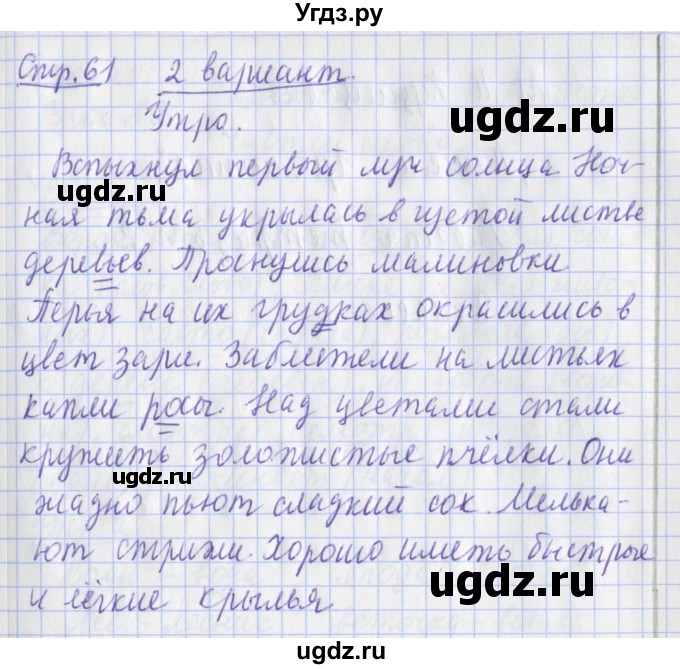 Угдз.ру
Стр. 61 2 вариант.
ugdz.ru
Утро.
Вспыхнул первый луч солнца. Ноч-
ugdz.ru
ная тьма укрылась в густой листве
деревьев. Проснулись малиновки.
ugdz.ru
Перья на их грудках окрасились в
цвет зари. Заблестели на листьях
капли росы. Над цветами стали
кружить золотистые пчёлки. Они
ugdz.ru
жадно пьют сладкий сок. Мелька-
ют стрижи. Хорошо иметь быстрые
ugdz.ru
и лёгкие крылья
ugdz.ru